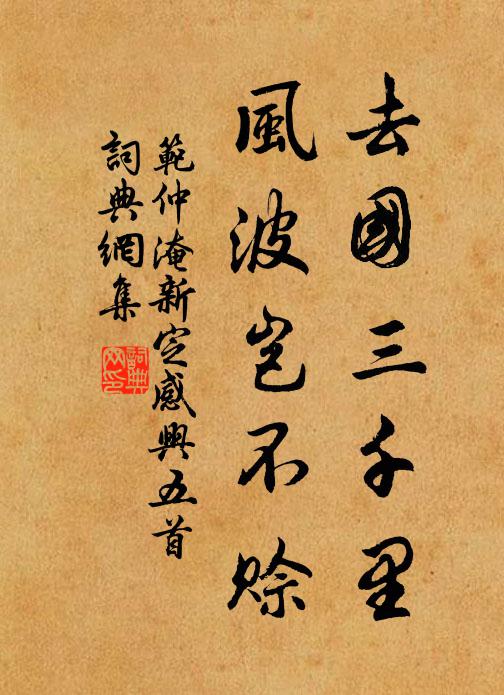 去國三千里
風波豈不賒
範仲淹新定感興五首
詞典網集
詞典
网印